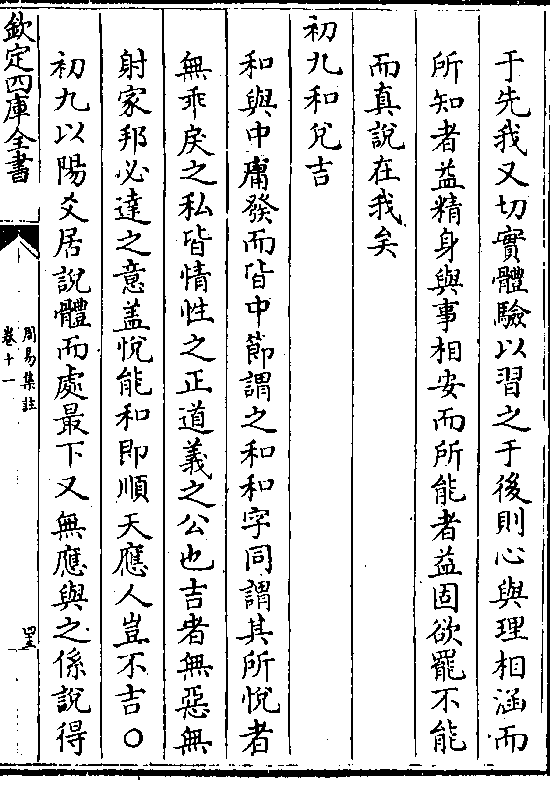 于先我又切實體驗以習之于後則心與理相涵而
所知者益精身與事相安而所能者益固欲罷不能
而真説在我矣
初九和兌吉
和與中庸發而皆中節謂之和和字同謂其所悅者
無乖戾之私皆情性之正道義之公也吉者無惡無
射家邦必達之意盖悅能和即順天應人豈不吉○
初九以陽爻居説體而處最下又無應與之係説得
欽定四庫全書
周易集註
卷十一